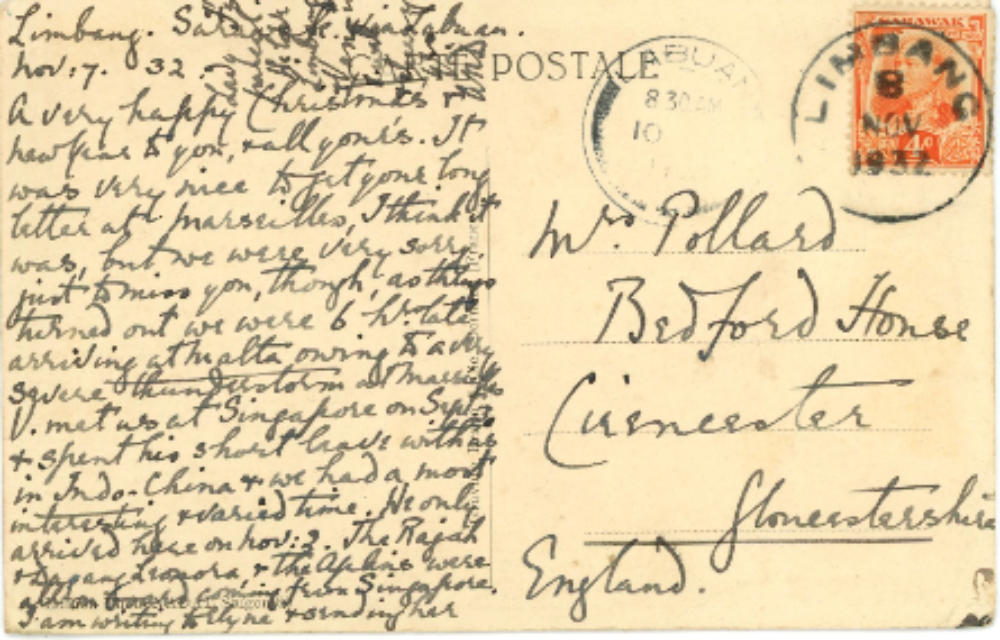 Limbang. Sarawak. via Labuan.
Nov: 7. 32.
CARTE POSTALE
A very happy Christmas &
New Year to you, & all yours. It
was very nice to get your long
letter at Marseilles, I think it
was, but we were very sorry
just to miss you, though, as things
turned out we were 6 hrs late
arriving at Malta owing to a very
severe thunderstorm at Marseilles
V. met us at Singapore on Sept:
& spent his short leave with us
in Indo-China & we had a most
interesting & varied time. We only
arrived here on Nov: 2. The Rajah
& Dayang Leonora, & the were
all on board coming from Singapore.
I am writing to & sending her
LABUAN
8 30 AM
10
SARAWAK
4c
LIMBANG
8
NOV
1932
Mrs. Pollard
Bedford House
Cirencester
Gloucestershire
England.